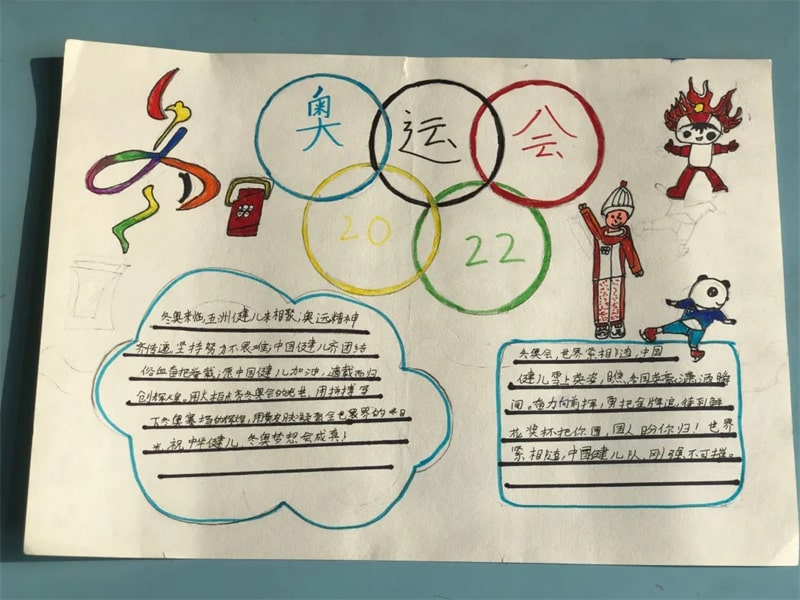 奥运会
2022
冬奥来临,五洲健儿来相聚;奥运精神
齐传递,坚持努力不畏难;中国健儿齐团结
浴血奋把誉载;愿中国健儿加油,满载而归
创辉煌。用大拍点亮冬奥会的,用拼搏写
下冬奥赛场的辉煌,用黄皮肤凝聚全世界的目
光,祝中华健儿,冬奥梦想会成真!
冬奥会,世界紧相随,中国
健儿雪上英姿,瞧,冬同英豪,潇洒瞬
间。奋力向前挥,勇把金牌追,待到
奖杯把你围,国人盼你归!世界
紧相随,中国健儿队,刚强不可摧。